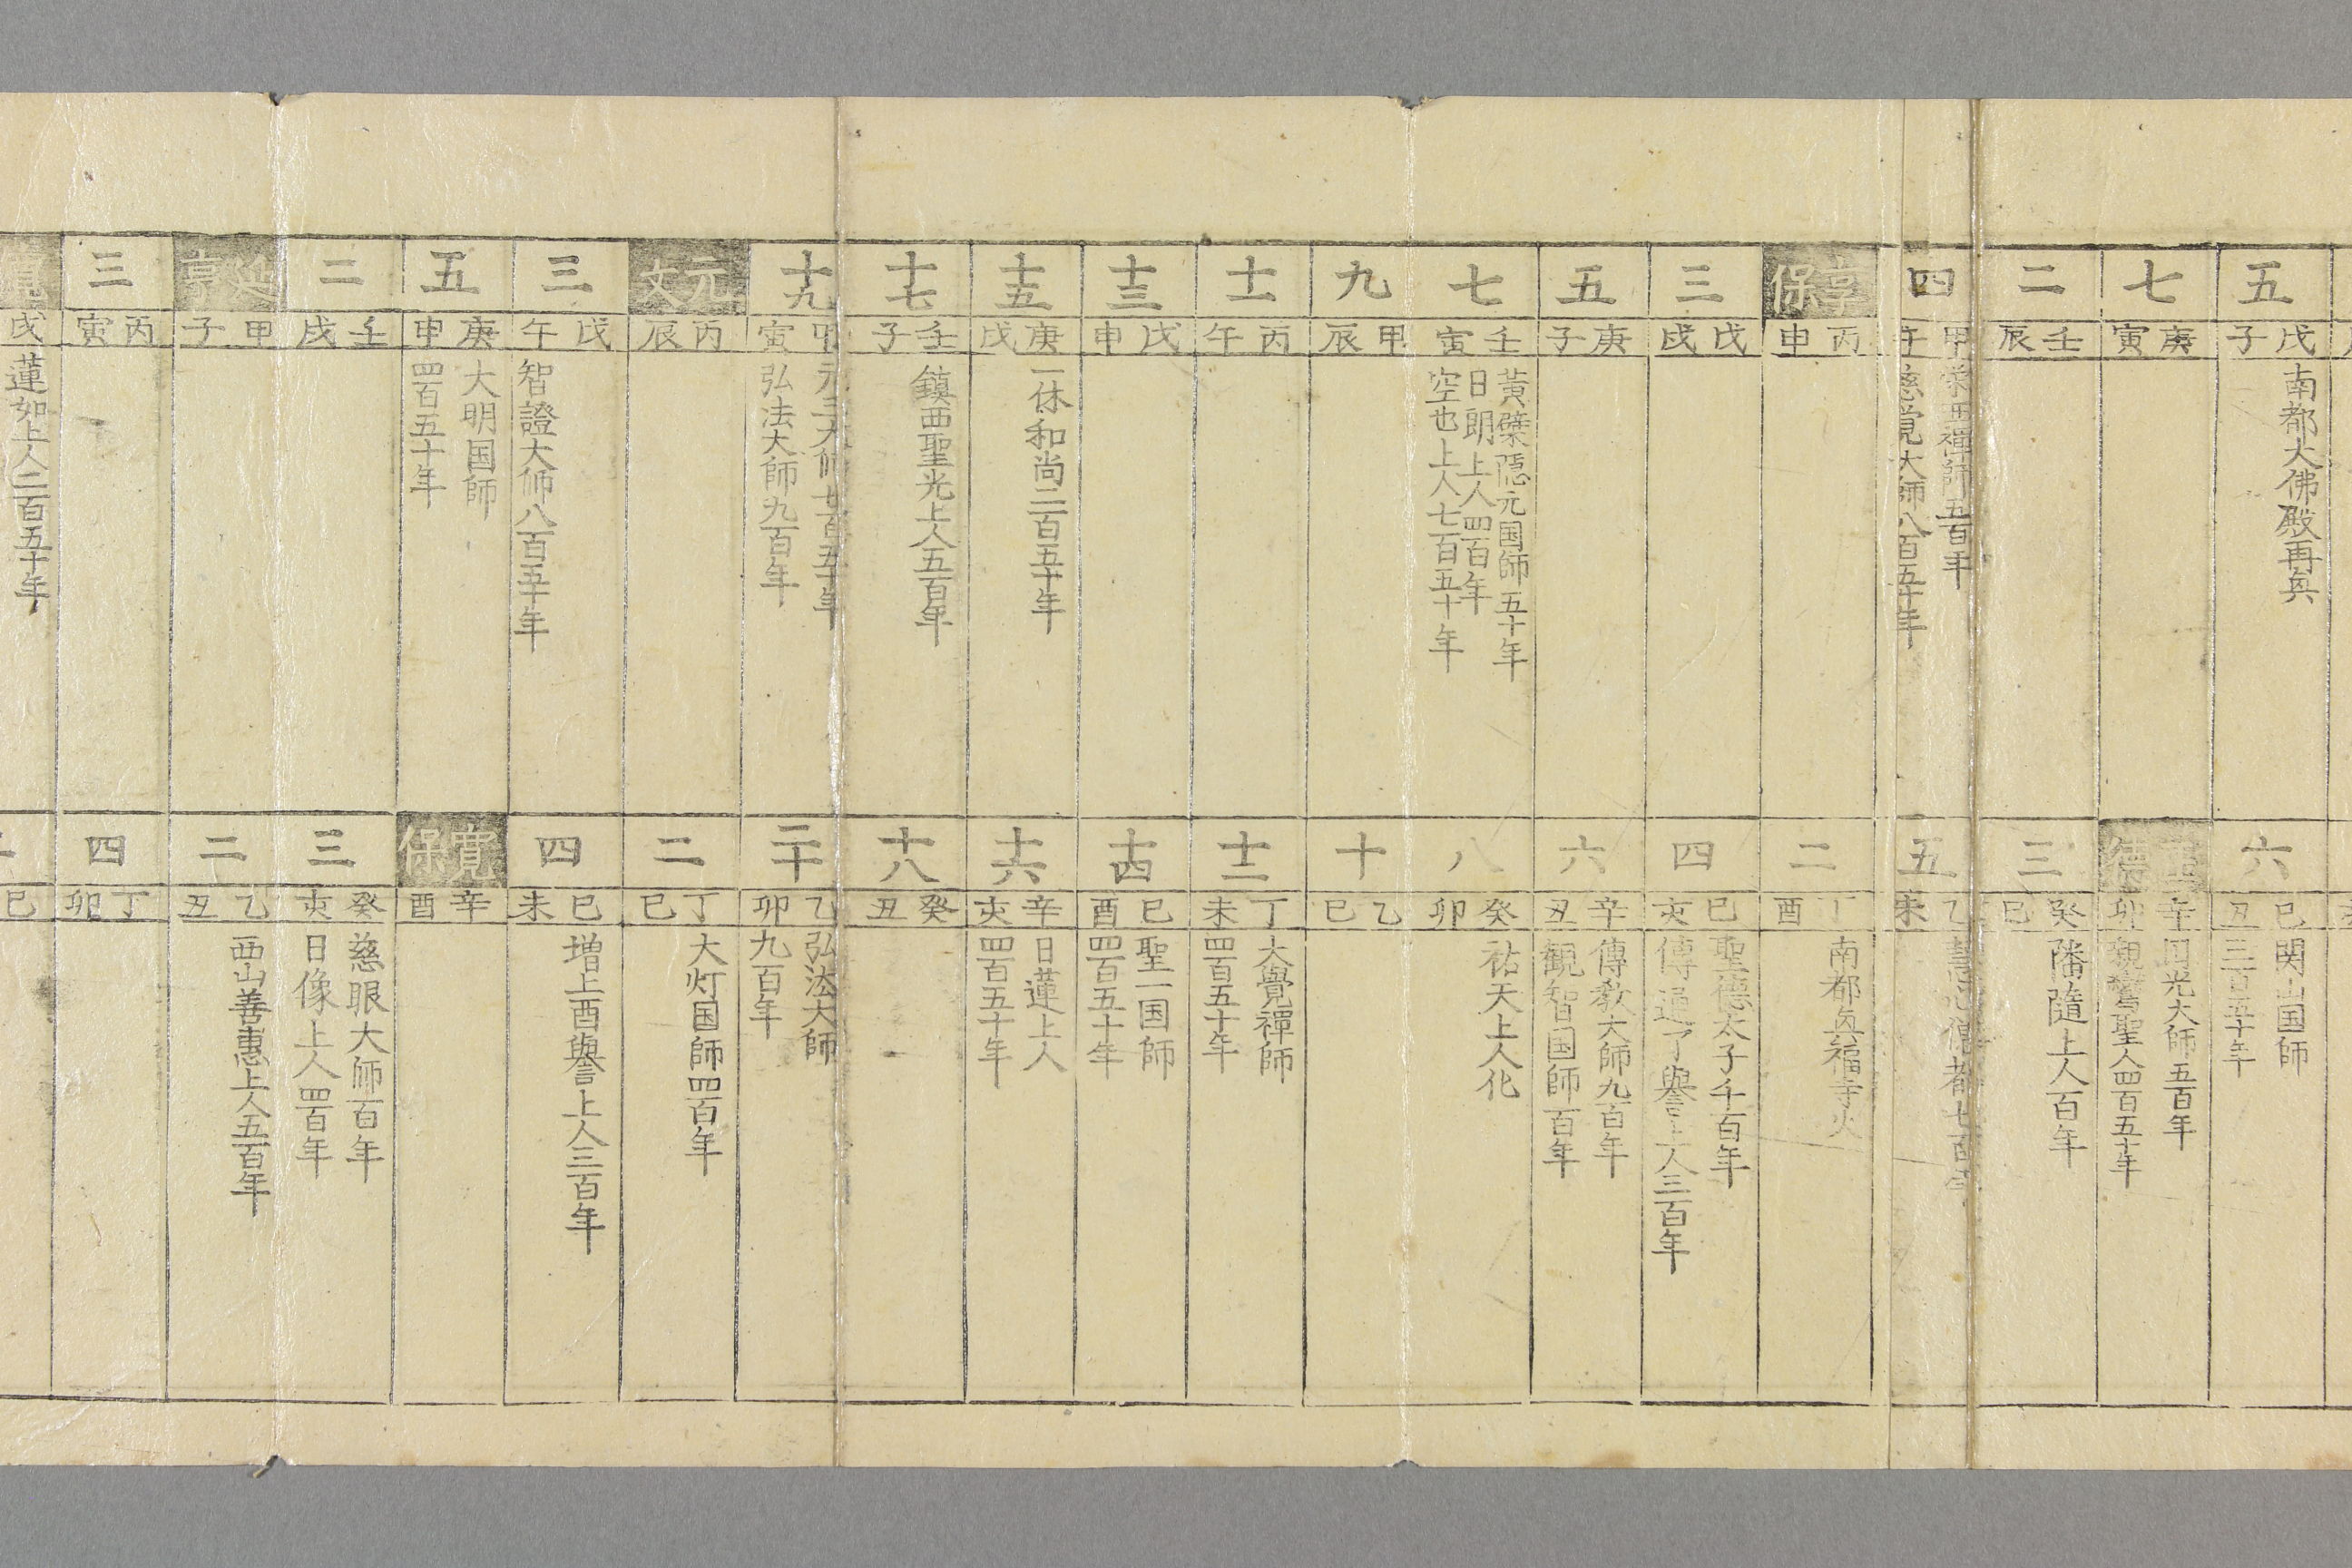 五
戊子
南都大佛殿再興
六
己丑
関山国師
三百五十年
七
庚寅
正徳
辛卯
圓光大師五百年
親鸞聖人四百五十年
二
壬辰
三
癸巳
幡隨上人百年
四
甲午
栄西禪師五百年
慈覚大師八百五十年
五
乙未
恵心僧都七百年
享保
丙申
二
丁酉
南都興福寺火
三
戊戌
四
己亥
聖徳太子千百年
傳通了譽上人三百年
五
庚子
六
辛丑
傳教大師九百年
観智国師百年
七
壬寅
黄檗隠元国師五十年
日朗上人四百年
空也上人七百五十年
八
癸卯
祐天上人化
九
甲辰
十
乙巳
十一
丙午
十二
丁未
大覺禪師
四百五十年
十三
戊申
十四
己酉
聖一国師
四百五十年
十五
庚戌
一休和尚二百五十年
十六
辛亥
日蓮上人
四百五十年
十七
壬子
鎮西聖光上人五百年
十八
癸丑
十九
甲寅
元三大师七百五十年
弘法大師九百年
二十
乙卯
弘法大師
九百年
元文
丙辰
二
丁巳
大灯国師四百年
三
戊午
智證大师八百五十年
四
己未
増上酉譽上人三百年
五
庚申
大明国師
四百五十年
寛保
辛酉
二
壬戌
三
癸亥
慈眼大师百年
日像上人四百年
延享
甲子
二
乙丑
西山善惠上人五百年
三
丙寅
四
丁卯
寛
戌
蓮如上人二百五十年
巳